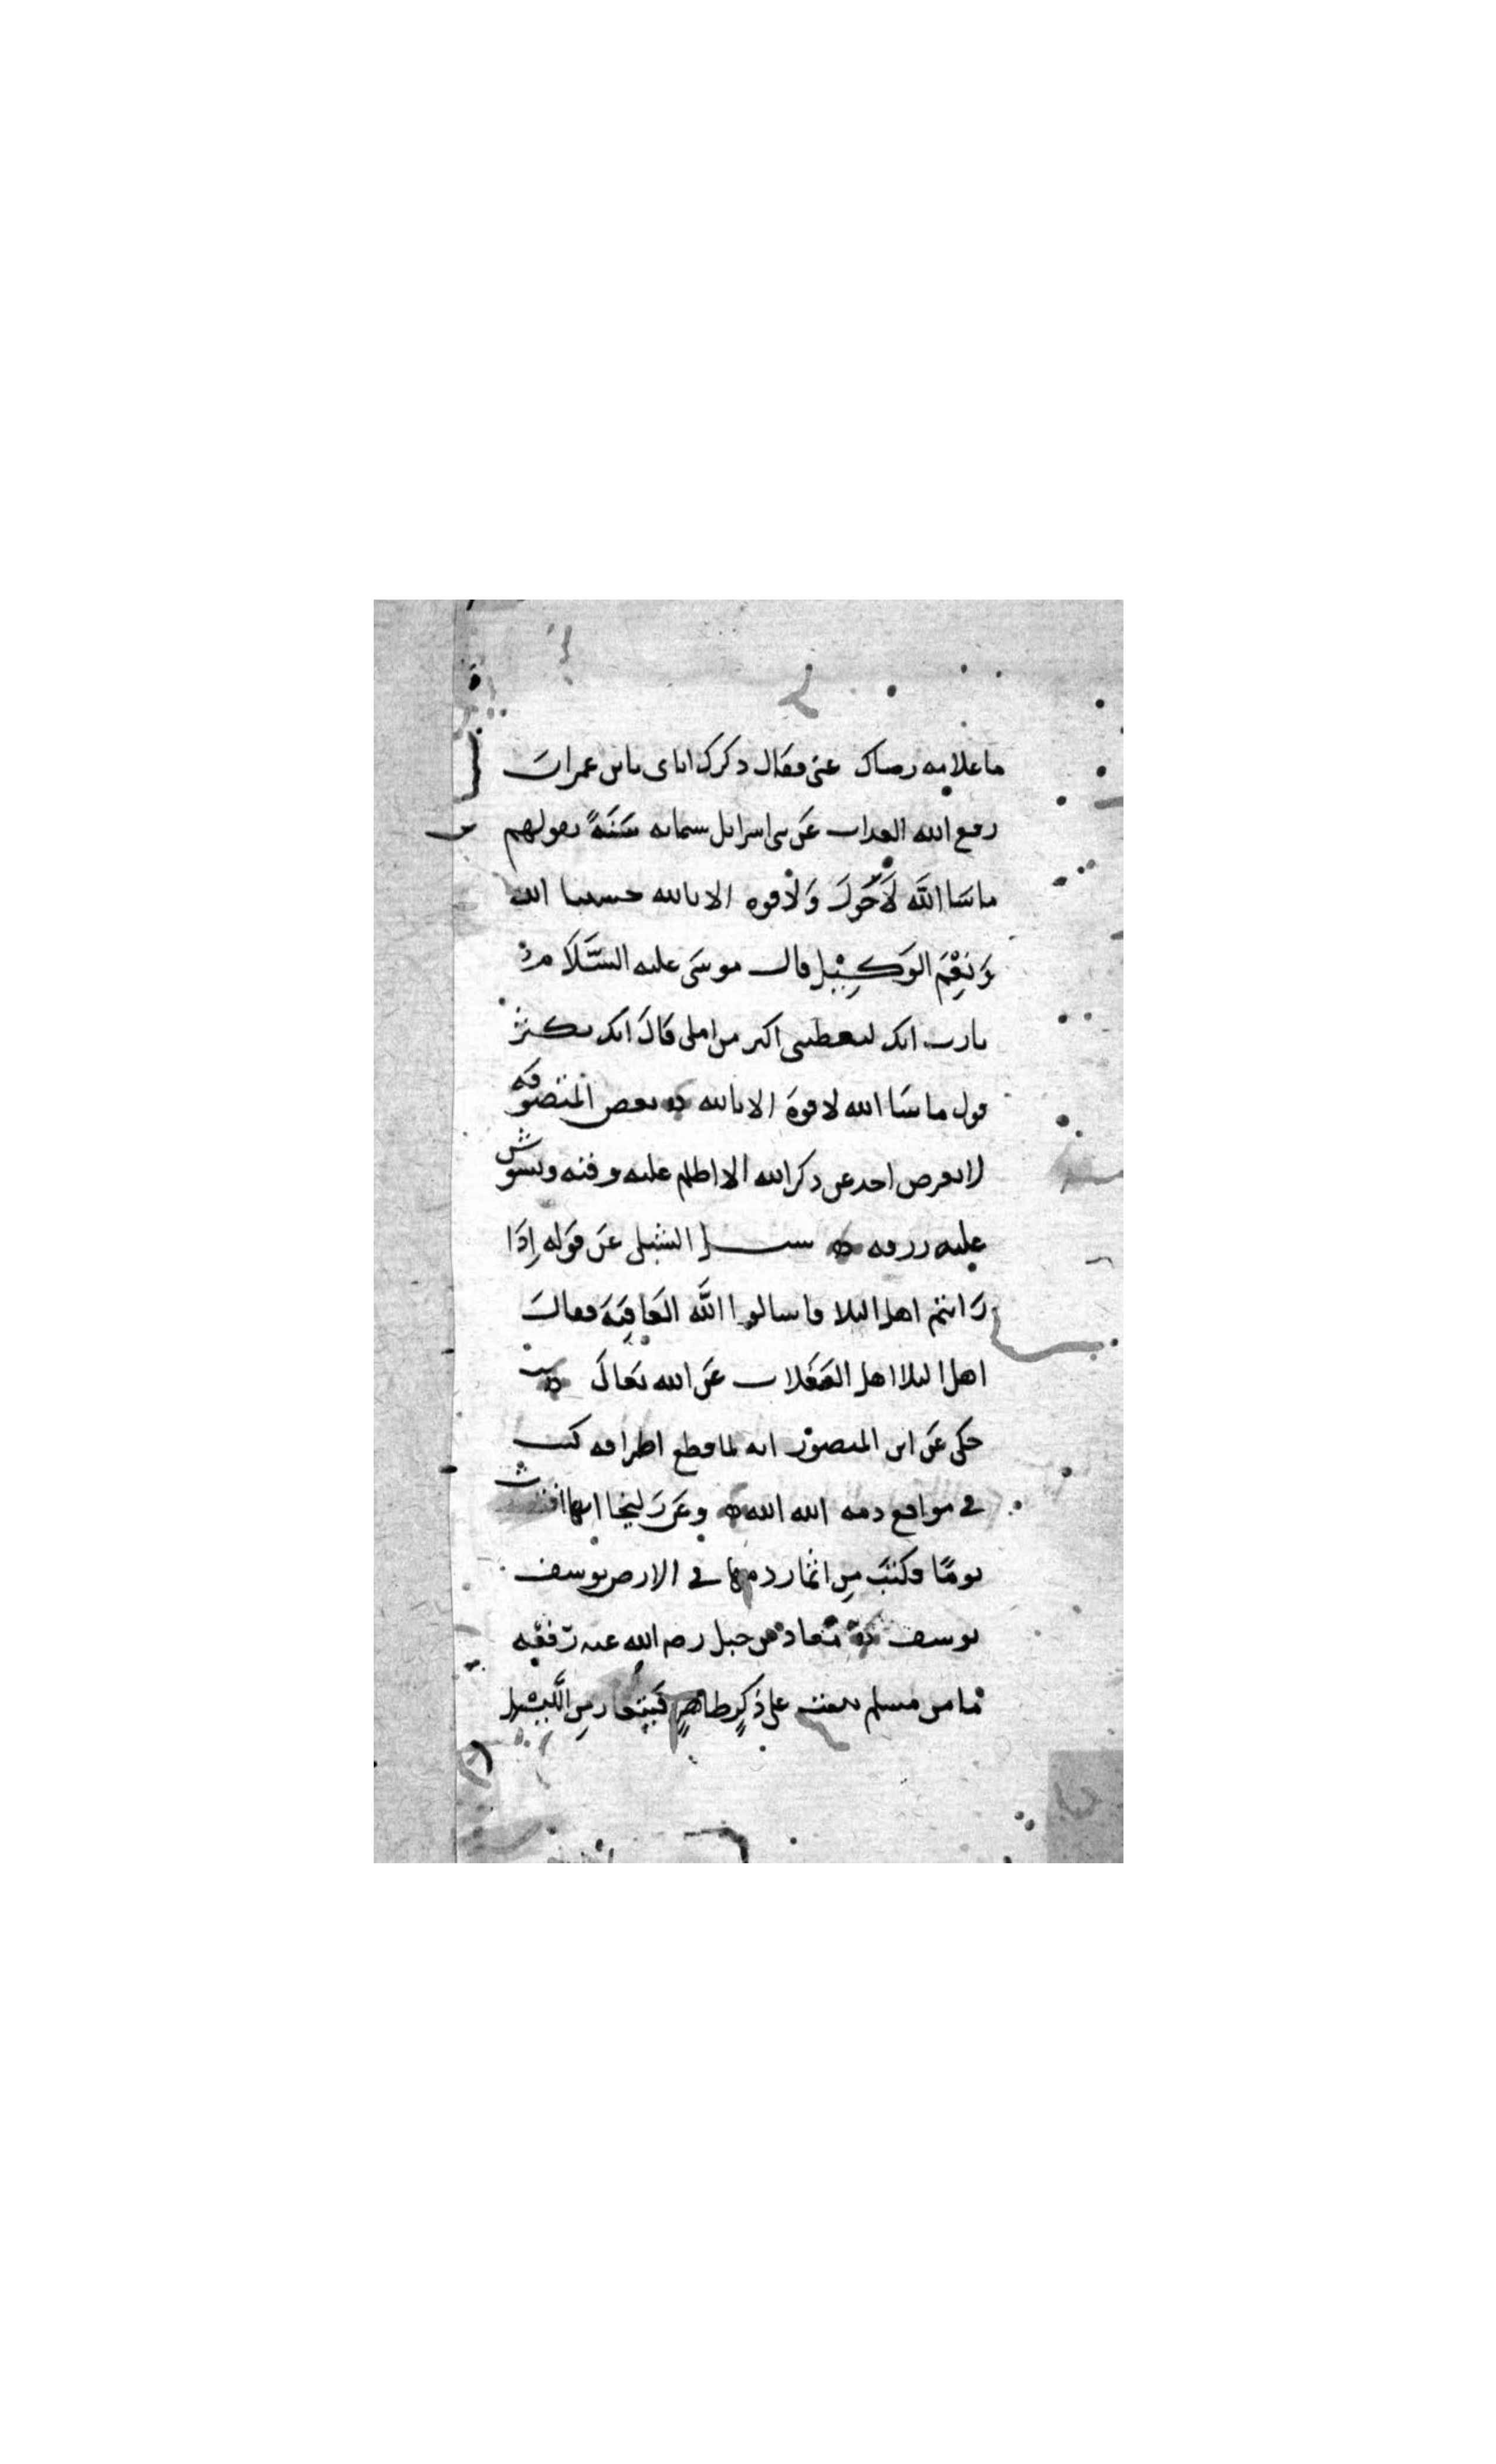 ما علامه رضاك عنى فقال ذكرك اياى يابن عمران
رفع الله العذاب عَن بنى اسرائيل ستمائه سَنَةً بقولهم
ما شَا اللَّه لَا حَولَ وَلَا قوه الا بالله حسبنا الله
وَنِعْمَ الوَكِيْل قال موسَى عليه السَّلَام
يارب انك لتعطينى اكثر من املى قالَ انك تكثر
قول ما شَا الله لا قوةَ الا بالله بعض المتصوفه
لا يعرض احد عن ذكر الله الا اظلم عليه وقته وتشوش
عليه رزقه سئل الشبلى عَن قَوله إذَا
رَايتم اهل البلا فاسالوا اللَّه العَافيَةَ فقالَ
اهل البلا اهل الغَفَلات عَن الله تَعَالَى
حكى عَن ابن المنصوْر انه لما قطع اطرافه كتب
في مواقع دمه الله الله وعَن زَليخا انها افتصدت
يومًا فكتبَ مِن اثار دمها في الارض يوسف
يوسف معاذ بن جبل رضى الله عنه رَفعَه
ما من مسلم يبيت على ذِكرٍ طاهرٍ فَيَتعَار مِن اللَّيْل